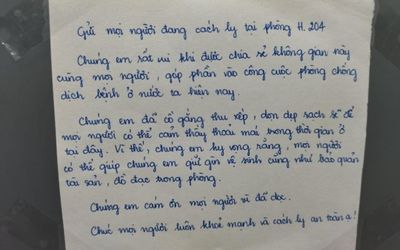 Gửi mọi người đang cách ly tại phòng H.204
Chúng em rất vui khi được chia sẻ không gian này
cùng mọi người, góp phần vào công cuộc phòng chống
dịch bệnh ở nước ta hiện nay.
Chúng em đã cố gắng thu xếp, dọn dẹp sạch sẽ để
mọi người có thể cảm thấy thoải mái trong thời gian ở
tại đây. Vì thế, chúng em hy vọng rằng, mọi người
có thể giúp chúng em giữ gìn vệ sinh cũng như bảo quản
tài sản, đồ đạc trong phòng.
Chúng em cảm ơn mọi người vì đã đọc.
Chúc mọi người luôn khoẻ mạnh và cách ly an toàn ạ!